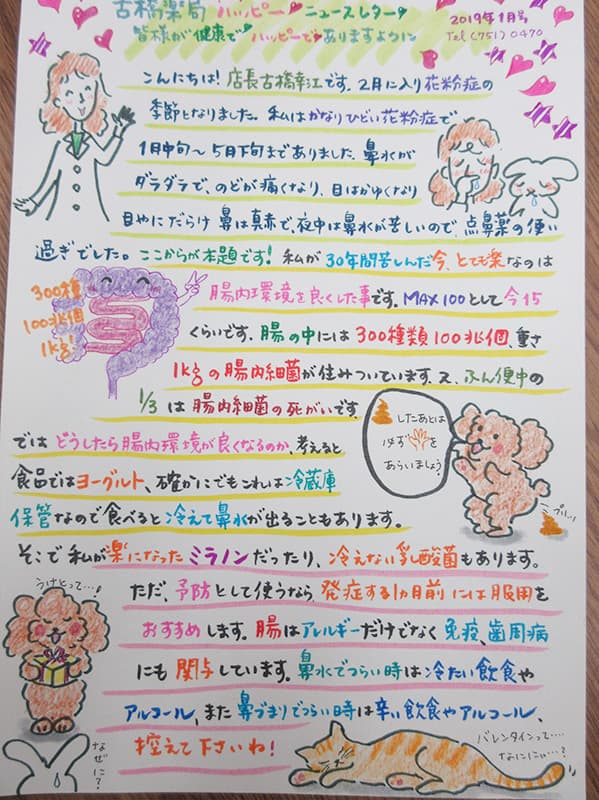 古橋薬局 ハッピーニュースレター
2019年1月号
皆様が健康でハッピーでありますように
Tel (751) 0470
こんにちは! 店長古橋幸江です。2月に入り花粉症の
季節となりました。私はかなりひどい花粉症で
1月中旬〜5月下旬までありました。鼻水が
ダラダラで、のどが痛くなり、目はかゆくなり
目やにだらけ 鼻は真赤で、夜中は鼻水が苦しいので、点鼻薬の使い
過ぎでした。ここからが本題です! 私が30年間苦しんだ今、とても楽なのは
300種
100兆個
1kg!
腸内環境を良くした事です。MAX100として今15
くらいです。腸の中には300種類100兆個、重さ
1kgの腸内細菌が住みついています。又、ふん便中の
1/3は腸内細菌の死がいです。
したあとは
必ず を
あらいましょう!
プリッ!
ではどうしたら腸内環境が良くなるのか、考えると
食品ではヨーグルト、確かにでもこれは冷蔵庫
保管なので食べると冷えて鼻水が出ることもあります。
そこで私が楽になったミラノンだったり、冷えない乳酸菌もあります。
うけとって…♪
ただ、予防として使うなら発症する1ヵ月前には服用を
おすすめします。腸はアレルギーだけでなく免疫、歯周病
にも関与しています。鼻水でつらい時は冷たい飲食や
アルコール、また鼻づまりでつらい時は辛い飲食やアルコール、
控えて下さいね!
なぜに?
バレンタインって…
なににぃ…?